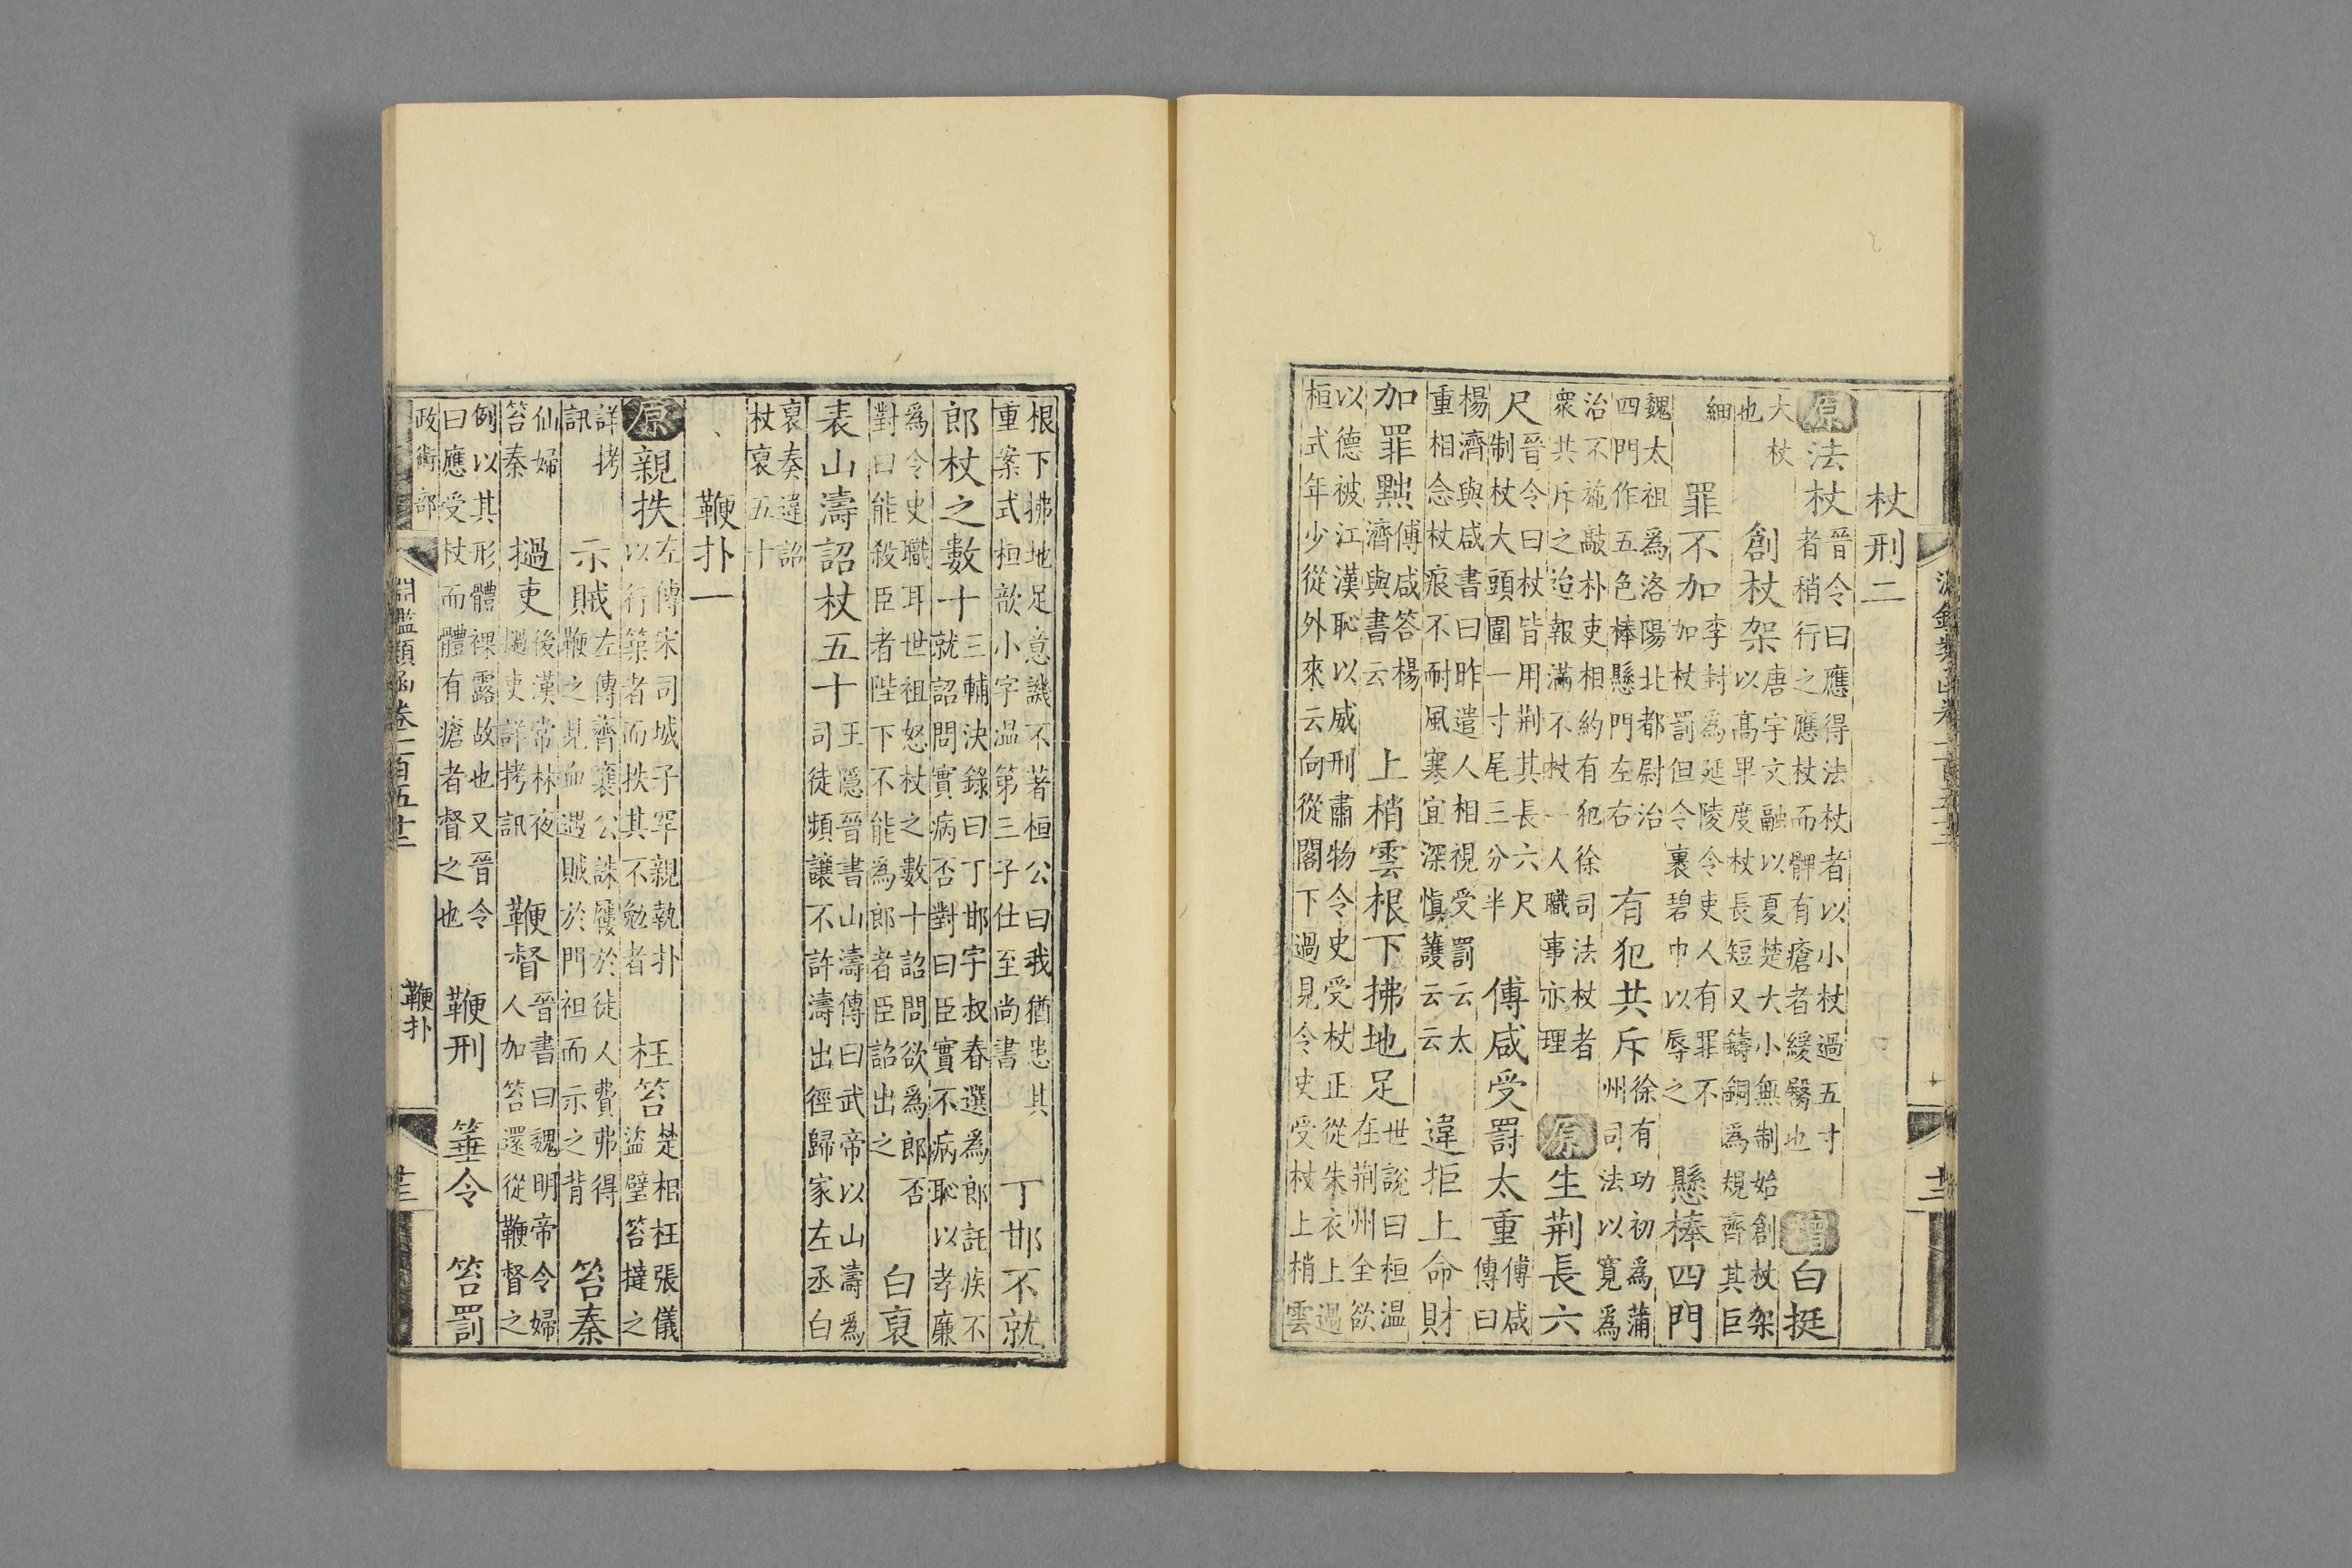 杖刑二
原法杖晉令曰應得法杖者以小杖過五寸者稍行之應杖而髀有瘡者緩醫也增白挺
大杖也創杖架唐宇文融以夏楚大小無制始創杖架以高卑度杖長短又鑄銅為規齊其巨
細罪不加李封為延陵令吏人有罪不加杖罰但令裹碧巾以辱之懸棒四門
魏太祖為洛陽北都尉治四門作五色棒懸門左右有犯共斥徐有功初為蒲州司法以寬為
治不施敲朴吏相約有犯徐司法杖者衆共斥之迨報滿不杖一人職事亦理原生荆長六
尺晉令曰杖皆用荆其長六尺制杖大頭圍一寸尾三分半傅咸受罰太重傅咸傳曰
楊濟與咸書曰昨遣人相視受罰云太重相念杖痕不耐風寒宜深慎護云云違拒上命財
加罪黙傅咸答楊濟與書云上梢雲根下拂地足世說曰桓温在荆州全欲
以德被江漢恥以威刑肅物令史受杖正從朱衣上過桓式年少從外來云向從閣下過見令史受杖上梢雲
根下拂地足意譏不著桓公曰我猶患其重案式桓歆小字温第三子仕至尚書丁邯不就
郎杖之數十三輔決錄曰丁邯字叔春選為郎託疾不就詔問實病否對曰臣實不病恥以孝廉
為令史職耳世祖怒杖之數十詔問欲為郎否對曰能殺臣者陛下不能為郎者臣詔出之白裒
表山濤詔杖五十王隱晉書山濤傳曰武帝以山濤為司徒頻讓不許濤出徑歸家左丞白
裒奏違詔杖裒五十
鞭扑一
原親抶左傳宋司城子罕親執扑以行築者而抶其不勉者枉笞楚相枉張儀盜璧笞撻之
詳拷訊示賊左傳齊襄公誅屨於徒人費弗得鞭之見血遇賊於門袒而示之背笞秦
仙婦笞秦撾吏後漢常林夜撾吏詳拷訊鞭督晉書曰魏明帝令婦人加笞還從鞭督之
例以其形體裸露故也又晉令曰應受杖而體有瘡者督之也鞭刑箠令笞罰
政術部淵鑑類函卷一百五十三鞭扑